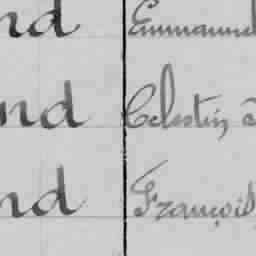 nd Emmanuel
nd Célestin, à
nd François